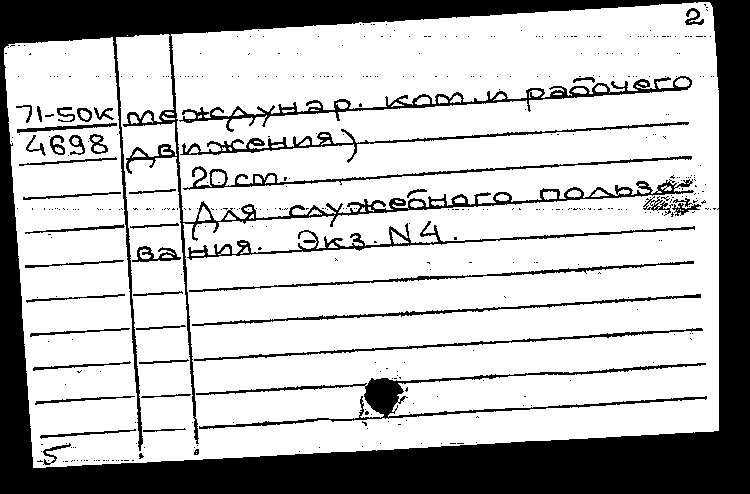 2
71-50К междунар. ком. и рабочего
4698 движения).
20 cm.
Для служебного пользо-
вания. Экз. N4.
5